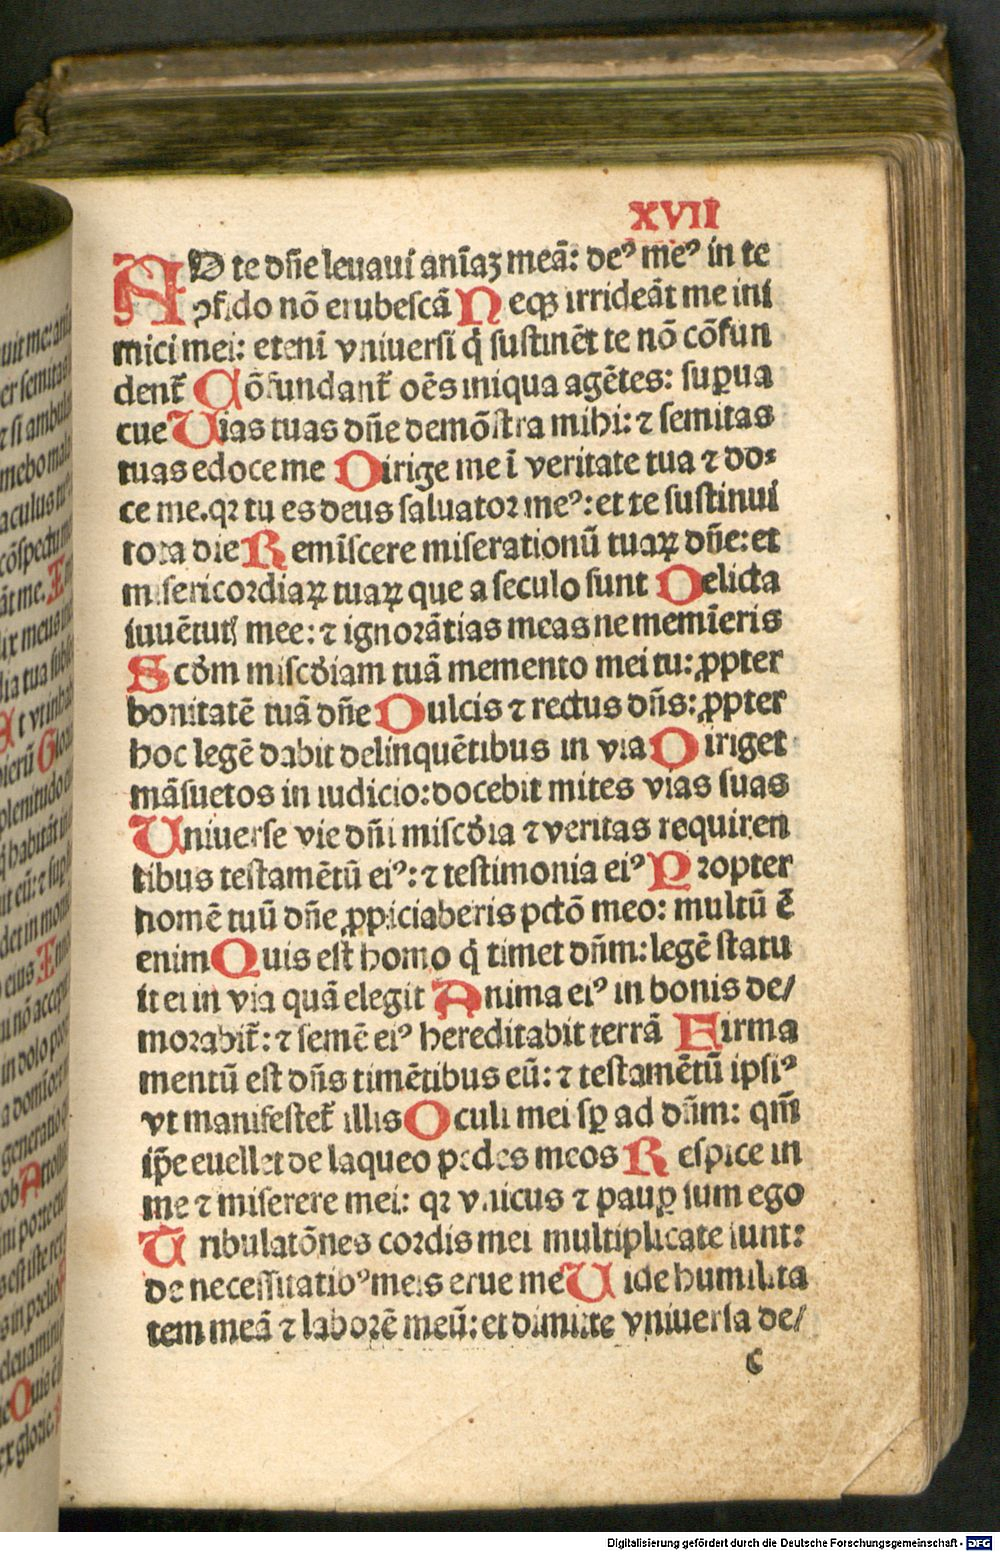 XVII
AD te dñe leuaui anĩaꝫ meã: deꝰ meꝰ in te
ꝯfido nõ erubescã Neqꝫ irrideãt me ini
mici mei: etenĩ vniuersi q̇ sustinẽt te nõ cõfun
dent᷑ Cõfundant᷑ oẽs iniqua agẽtes: suꝑua
cue Uias tuas dñe demõstra mihi: ⁊ semitas
tuas edoce me Dirige me ĩ veritate tua ⁊ do⸗
ce me. qꝛ tu es deus saluatoꝛ meꝰ: et te sustinui
tota die Remĩscere miserationũ tuaꝝ dñe: et
misericoꝛdiaꝝ tuaꝝ que a seculo sunt Delicta
iuuẽtutꝭ mee: ⁊ ignoꝛãtias meas ne memĩeris
Scd̾m miscd̾iam tuã memento mei tu: ꝓpter
bonitatẽ tuã dñe Dulcis ⁊ rectus dñs: ꝓpter
hoc legẽ dabit delinquẽtibus in via Diriget
mãsuetos in iudicio: docebit mites vias suas
Uniuerse vie dñi miscd̾ia ⁊ veritas requiren
tibus testamẽtũ eiꝰ: ⁊ testimonia eiꝰ Pꝛopter
nomẽ tuũ dñe ꝓpiciaberis pctõ meo: multũ ẽ
enim Quis est homo q̇ timet dñm: legẽ statu
it ei in via quã elegit Anima eiꝰ in bonis de/
moꝛabit᷑: ⁊ semẽ eiꝰ hereditabit terrã Firma
mentũ est dñs timẽtibus eũ: ⁊ testamẽtũ ipsiꝰ
vt manifestet᷑ illis Oculi mei sꝑ ad dñm: qm̃
ip̃e euellet de laqueo pedes meos Respice in
me ⁊ miserere mei: qꝛ vnicus ⁊ pauꝑ sum ego
Tribulatõnes coꝛdis mei multiplicate sunt:
de necessitatibꝰ meis erue me Uide humilita
tem meã ⁊ laboꝛẽ meũ: et dimitte vniuersa de/
c
Digitalisierung gefördert durch die Deutsche Forschungsgemeinschaft - DFG